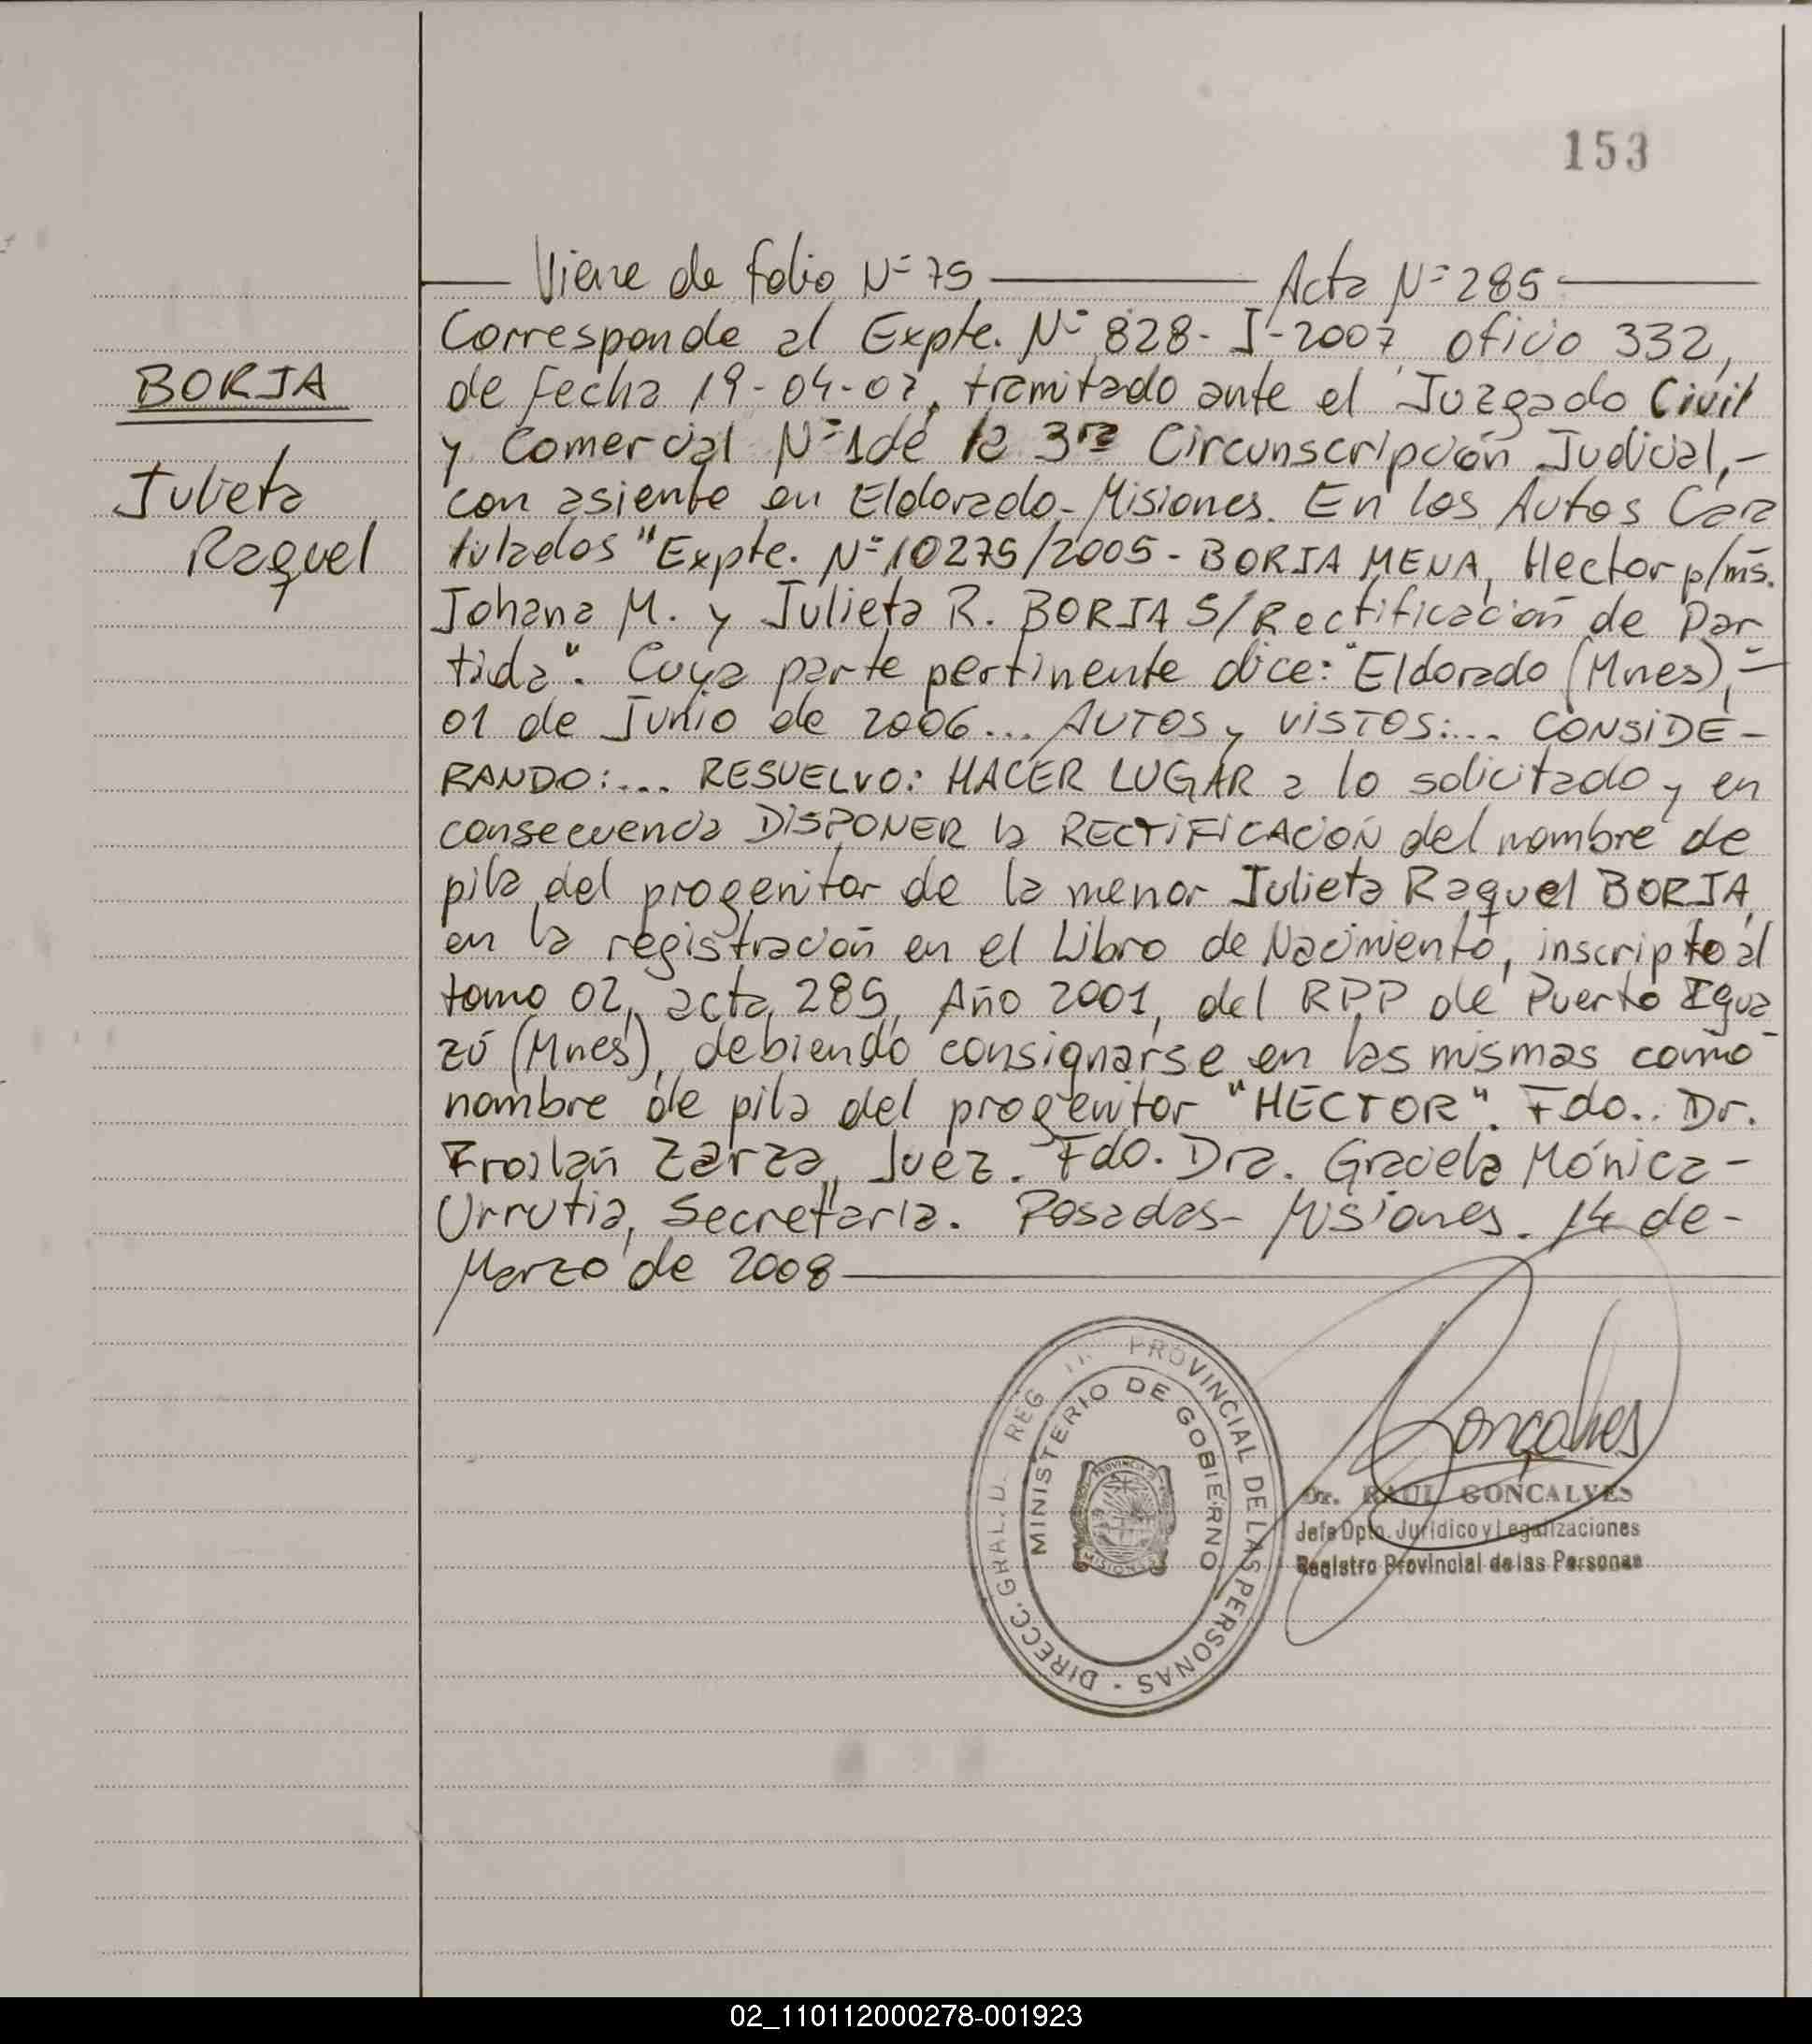 153
Viene de folio Nº 75 Acta Nº 285
Corresponde al Expte. Nº 828-I-2007, oficio 332,
de fecha 19-04-07, tramitado ante el Juzgado Civil
y Comercial Nº 1 de la 3ra Circunscripción Judicial,-
con asiento en Eldorado-Misiones. En los Autos Cara
tulados "Expte. Nº 10275/2005- BORJA MENA, Hector p/ms.
Johana M. y Julieta R. BORJA S/Rectificación de Par
tida". Cuya parte pertinente dice: "Eldorado (Mnes),-
01 de Junio de 2006... AUTOS y VISTOS:... CONSIDE-
RANDO:... RESUELVO: HACER LUGAR a lo solicitado y en
consecuencia DISPONER la RECTIFICACIÓN del nombre de
pila del progenitor de la menor Julieta Raquel BORJA,
en la registración en el Libro de Nacimiento, inscripto al
tomo 02, acta 285, Año 2001, del RPP de Puerto Igua
zú (Mnes), debiendo consignarse en las mismas como
nombre de pila del progenitor "HECTOR". Fdo.. Dr.
Froilán Zarza, Juez. Fdo. Dra. Graciela Mónica-
Urrutia, Secretaria. Posadas- Misiones. 14 de-
Marzo de 2008
BORJA
Julieta
Raquel
DIRECC. GRAL. D. REG PROVINCIAL DE LAS PERSONAS -
MINISTERIO DE GOBIERNO
PROVINCIA DE
MISIONES
Gonçalves
Dr. RAUL GONCALVES
Jefe Dpto. Jurídico y Legalizaciones
Registro Provincial de las Personas
02_110112000278-001923